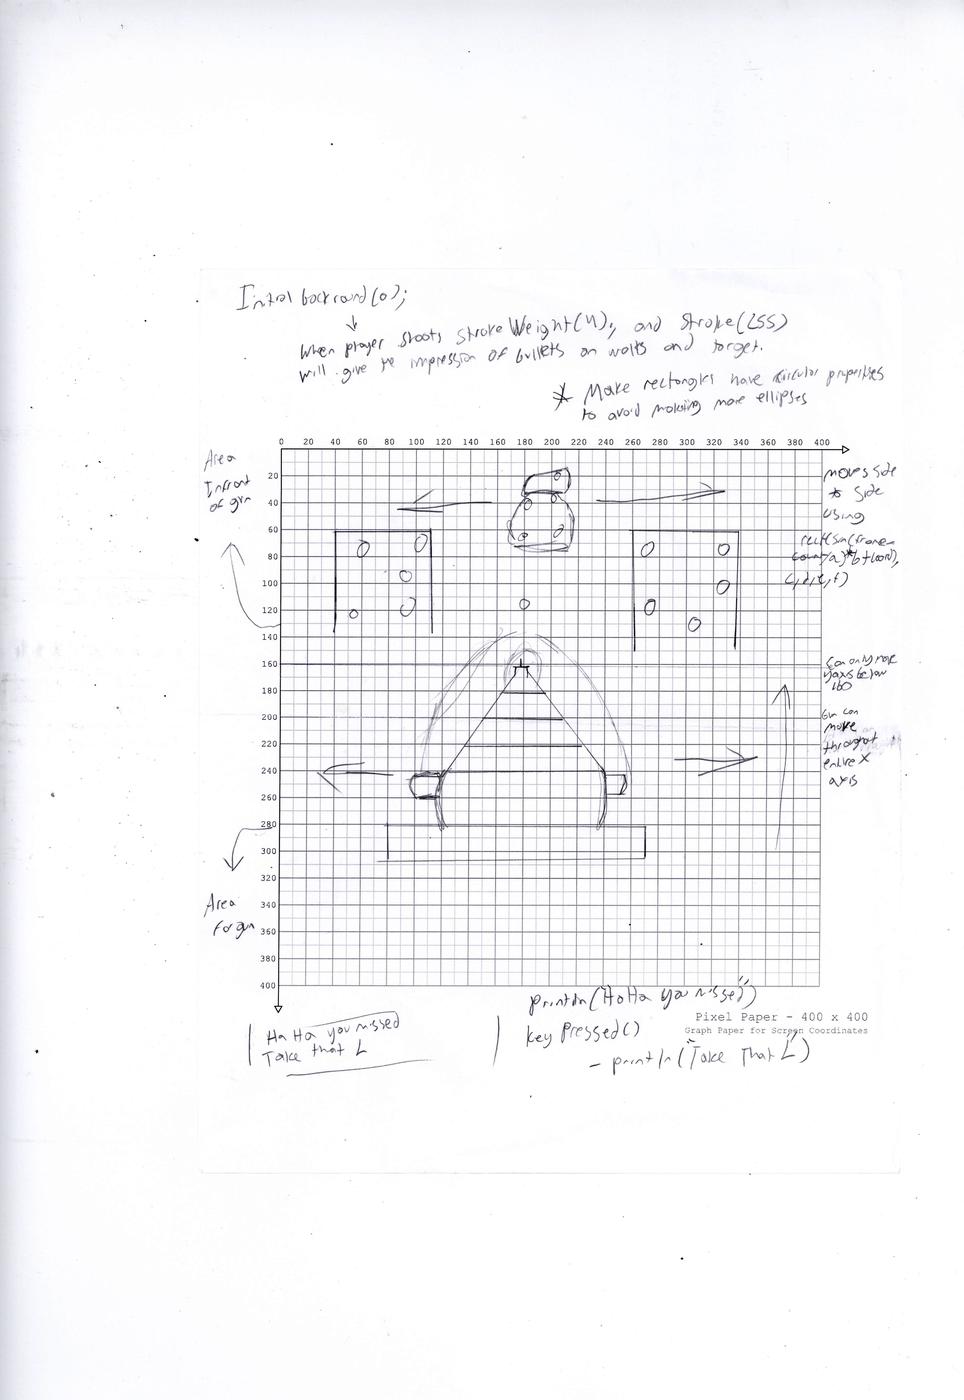 Initial backround(0);
When player shoots strokeWeight(4); and stroke(255)
will give the impression of bullets on walls and target.
* Make rectangles have circular properties
to avoid making more ellipses
0 20 40 60 80 100 120 140 160 180 200 220 240 260 280 300 320 340 360 380 400
Area
Infront
of gun
20
40
60
80
100
120
140
160
180
200
220
240
260
280
300
320
340
360
380
400
moves side
to side
using
rect(sin(frame-
count/a)*b+(
c,d,e,f)
can only move
yaxis below
160
Gun can
move
throughout
entire X
axis
Area
For gun
println("HaHa you missed")
Pixel Paper - 400 x 400
Graph Paper for Screen Coordinates
Ha Ha you missed
Take that L
key Pressed()
- println("Take That L")